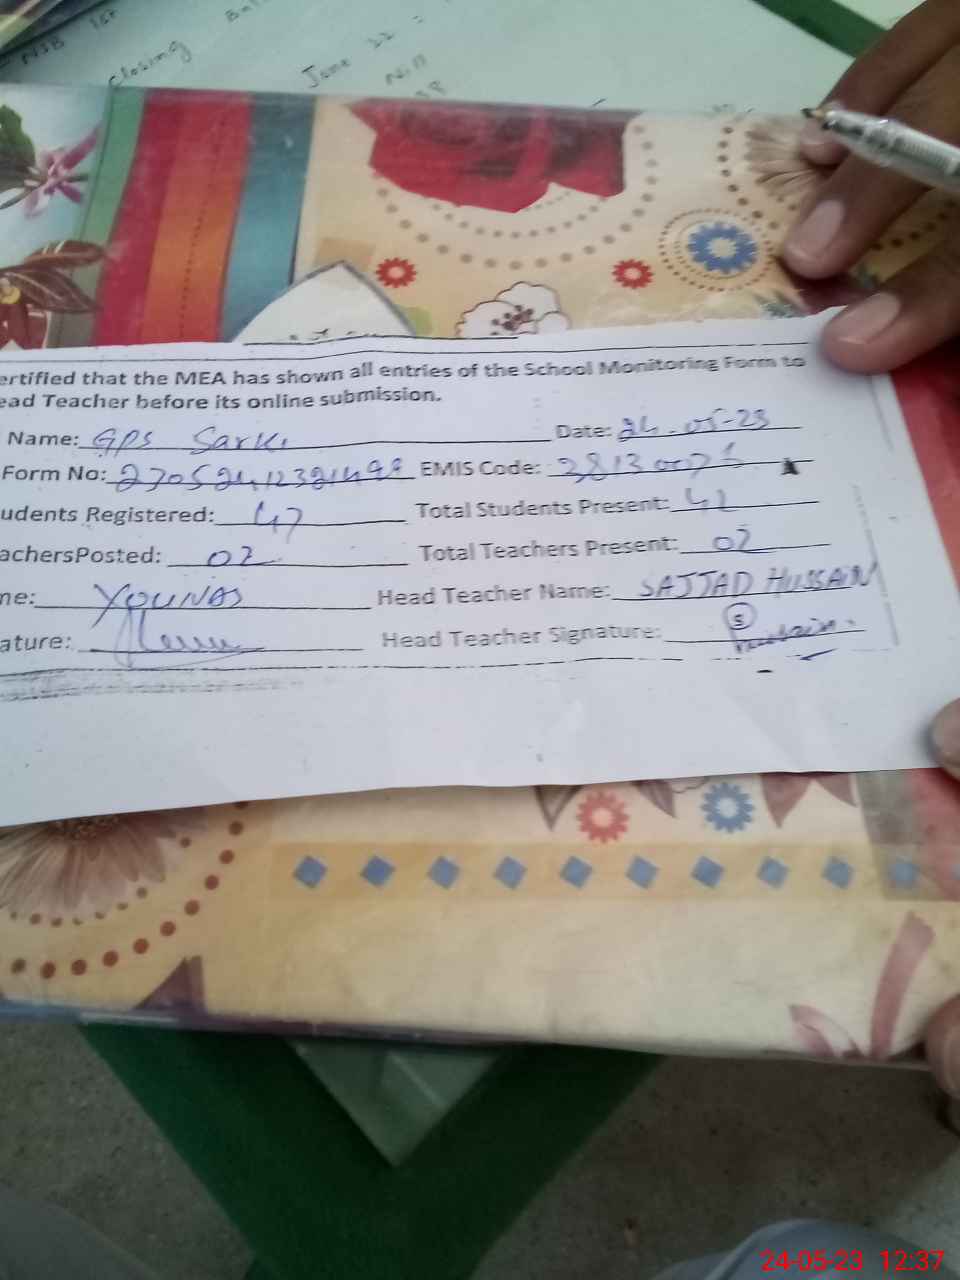 NSB 1st
closing
June 22 =
ertified that the MEA has shown all entries of the School Monitoring Form to
ead Teacher before its online submission.
Name: GPS Sarki Date: 24-05-23
Form No: EMIS Code:
udents Registered: 47 Total Students Present: 42
achersPosted: 02 Total Teachers Present: 02
me: YOUNAS Head Teacher Name: SAJJAD HUSSAIN
ature: Head Teacher Signature:
24-05-23 12:37